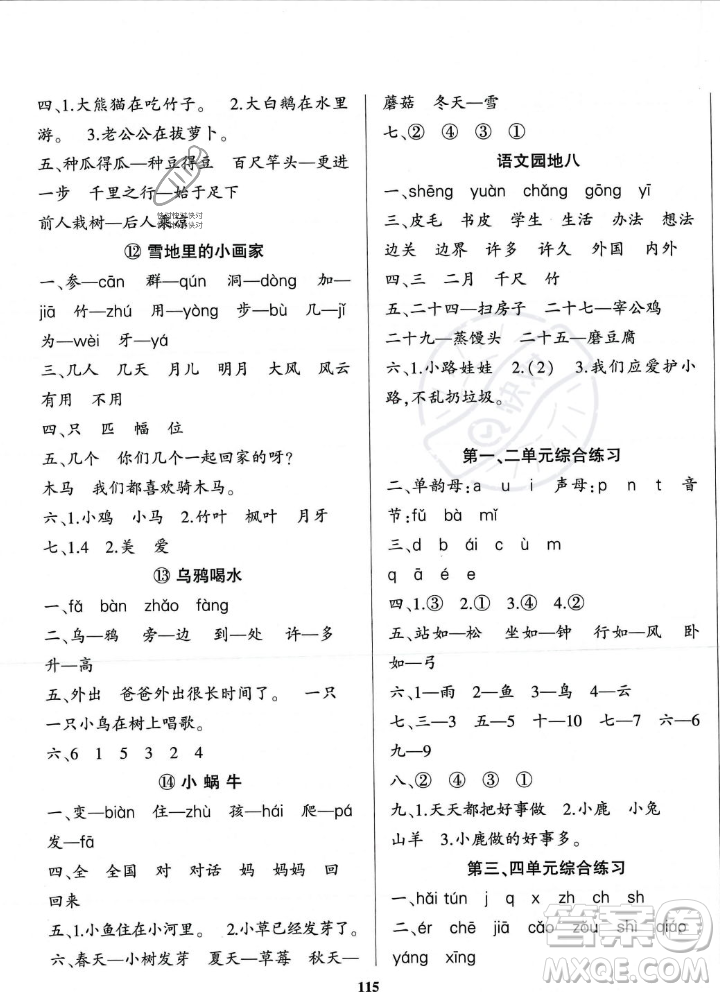 四、1.大熊猫在吃竹子。 2.大白鹅在水里
游。 3.老公公在拔萝卜。
五、种瓜得瓜—种豆得豆 百尺竿头—更进
一步 千里之行—始于足下
前人栽树—后人乘凉
⑫ 雪地里的小画家
一、参—cān 群—qún 洞—dòng 加—
jiā 竹—zhú 用—yòng 步—bù 几—jǐ
为—wèi 牙—yá
三、几人 几天 月儿 明月 大风 风云
有用 不用
四、只 匹 幅 位
五、几个 你们几个一起回家的呀?
木马 我们都喜欢骑木马。
六、1.小鸡 小马 2.竹叶 枫叶 月牙
七、1.4 2.美 爱
⑬ 乌鸦喝水
一、fǎ bàn zhǎo fàng
二、乌—鸦 旁—边 到—处 许—多
升—高
五、外出 爸爸外出很长时间了。 一只
一只小鸟在树上唱歌。
六、6 1 5 3 2 4
⑭ 小 蜗 牛
一、变—biàn 住—zhù 孩—hái 爬—pá
发—fā
四、全 全国 对 对话 妈 妈妈 回
回来
五、1.小鱼住在小河里。 2.小草已经发芽了。
六、春天—小树发芽 夏天—草莓 秋天—
蘑菇 冬天—雪
七、② ④ ③ ①
语文园地八
一、shēng yuàn chǎng gōng yī
三、皮毛 书皮 学生 生活 办法 想法
边关 边界 许多 许久 外国 内外
四、三 二月 千尺 竹
五、二十四—扫房子 二十七—宰公鸡
二十九—蒸馒头 二十五—磨豆腐
六、1.小路娃娃 2.(2) 3.我们应爱护小
路,不乱扔垃圾。
第一、二单元综合练习
二、单韵母:a u i 声母:p n t 音
节:fǔ bà mǐ
三、d b ái c ù ù
q ā é e
四、1.③ 2.① 3.④ 4.②
五、站如—松 坐如—钟 行如—风 卧
如—弓
六、1—雨 2—鱼 3—鸟 4—云
七、三—3 五—5 十—10 六—6
九—9
八、② ④ ③ ①
九、1.天天都把好事做 2.小鹿 小兔
山羊 3.小鹿做的好事多。
第三、四单元综合练习
一、hǎi tún j q x zh ch sh
二、ér chē jiā cǎo zǒu shì qiáo
yáng xīng
115
作业帮答案
MXQE.COM